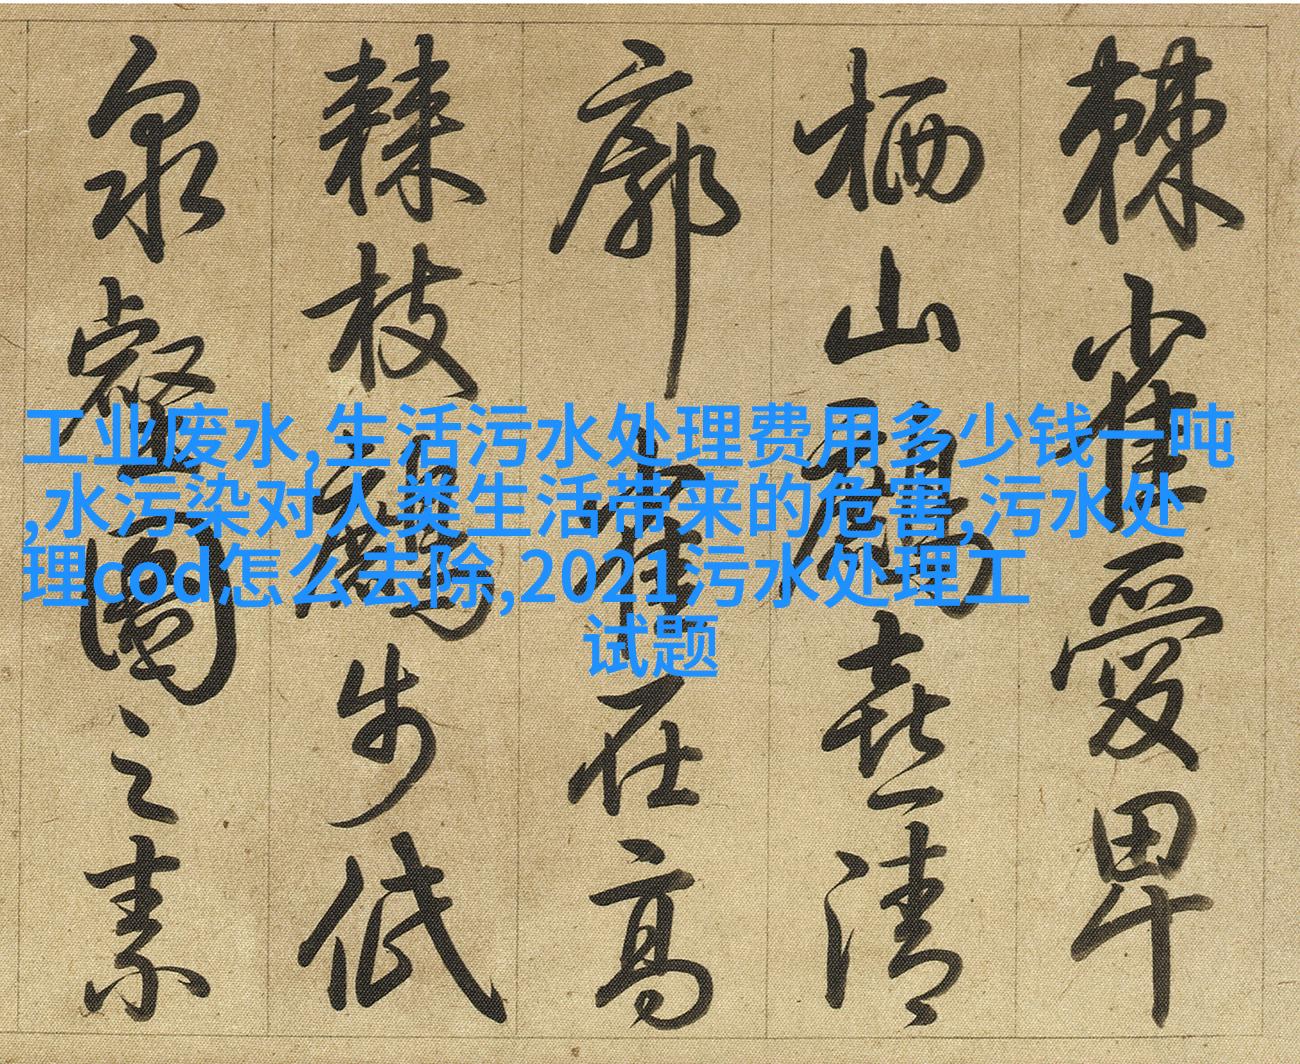 棘雀愛卑
栖山鶴喜清
廓雀在高
棘枝鶴步低
泉壑園之素
工业废水,生活污水处理费用多少钱一吨
,水污染对人类生活带来的危害,污水处
理cod怎么去除,2021污水处理工
试题